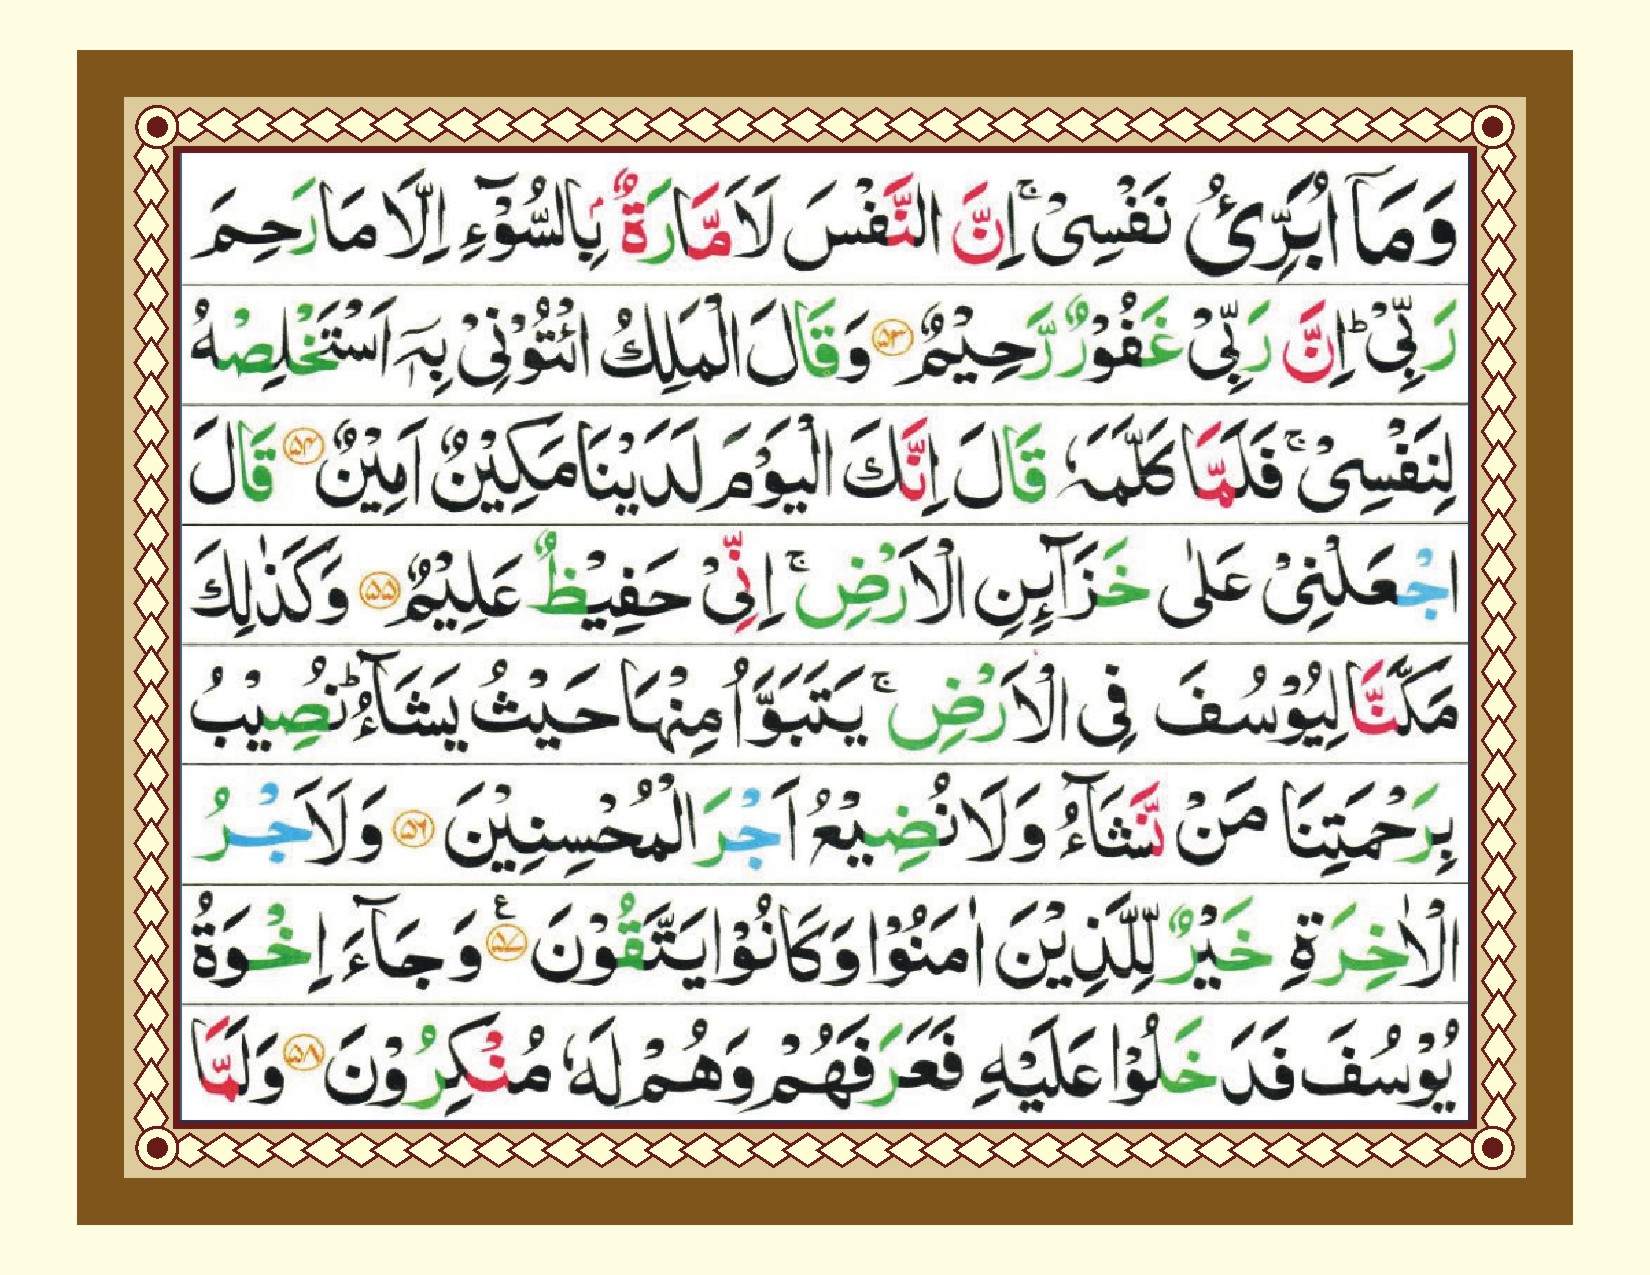 وَمَآ اُبَرِّئُ نَفْسِیْ ۚ اِنَّ النَّفْسَ لَاَمَّارَةٌۢ بِالسُّوْٓءِ اِلَّا مَا رَحِمَ
رَبِّیْ ؕ اِنَّ رَبِّیْ غَفُوْرٌ رَّحِیْمٌ ۵۳ وَقَالَ الْمَلِكُ ائْتُوْنِیْ بِهٖۤ اَسْتَخْلِصْهُ
لِنَفْسِیْ ۚ فَلَمَّا كَلَّمَهٗ قَالَ اِنَّكَ الْیَوْمَ لَدَیْنَا مَكِیْنٌ اَمِیْنٌ ۵۴ قَالَ
اجْعَلْنِیْ عَلٰی خَزَآئِنِ الْاَرْضِ ۚ اِنِّیْ حَفِیْظٌ عَلِیْمٌ ۵۵ وَكَذٰلِكَ
مَكَّنَّا لِیُوْسُفَ فِی الْاَرْضِ ۚ یَتَبَوَّاُ مِنْهَا حَیْثُ یَشَآءُ ؕ نُصِیْبُ
بِرَحْمَتِنَا مَنْ نَّشَآءُ وَلَا نُضِیْعُ اَجْرَ الْمُحْسِنِیْنَ ۵۶ وَلَاَجْرُ
الْاٰخِرَةِ خَیْرٌ لِّلَّذِیْنَ اٰمَنُوْا وَكَانُوْا یَتَّقُوْنَ ۵۷ ع وَجَآءَ اِخْوَةُ
یُوْسُفَ فَدَخَلُوْا عَلَیْهِ فَعَرَفَهُمْ وَهُمْ لَهٗ مُنْكِرُوْنَ ۵۸ وَلَمَّا